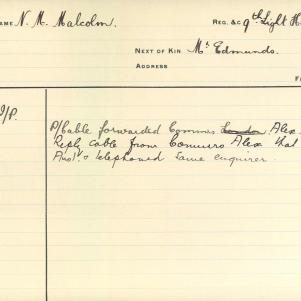 NAME N. M. Malcolm. REG. &C 9th Light H
NEXT OF KIN Mr Edmunds.
ADDRESS
F
I/P.
P/Cable forwarded Commrs London Alex
Reply cable from Commrs Alex that
& telephoned same enquirer.